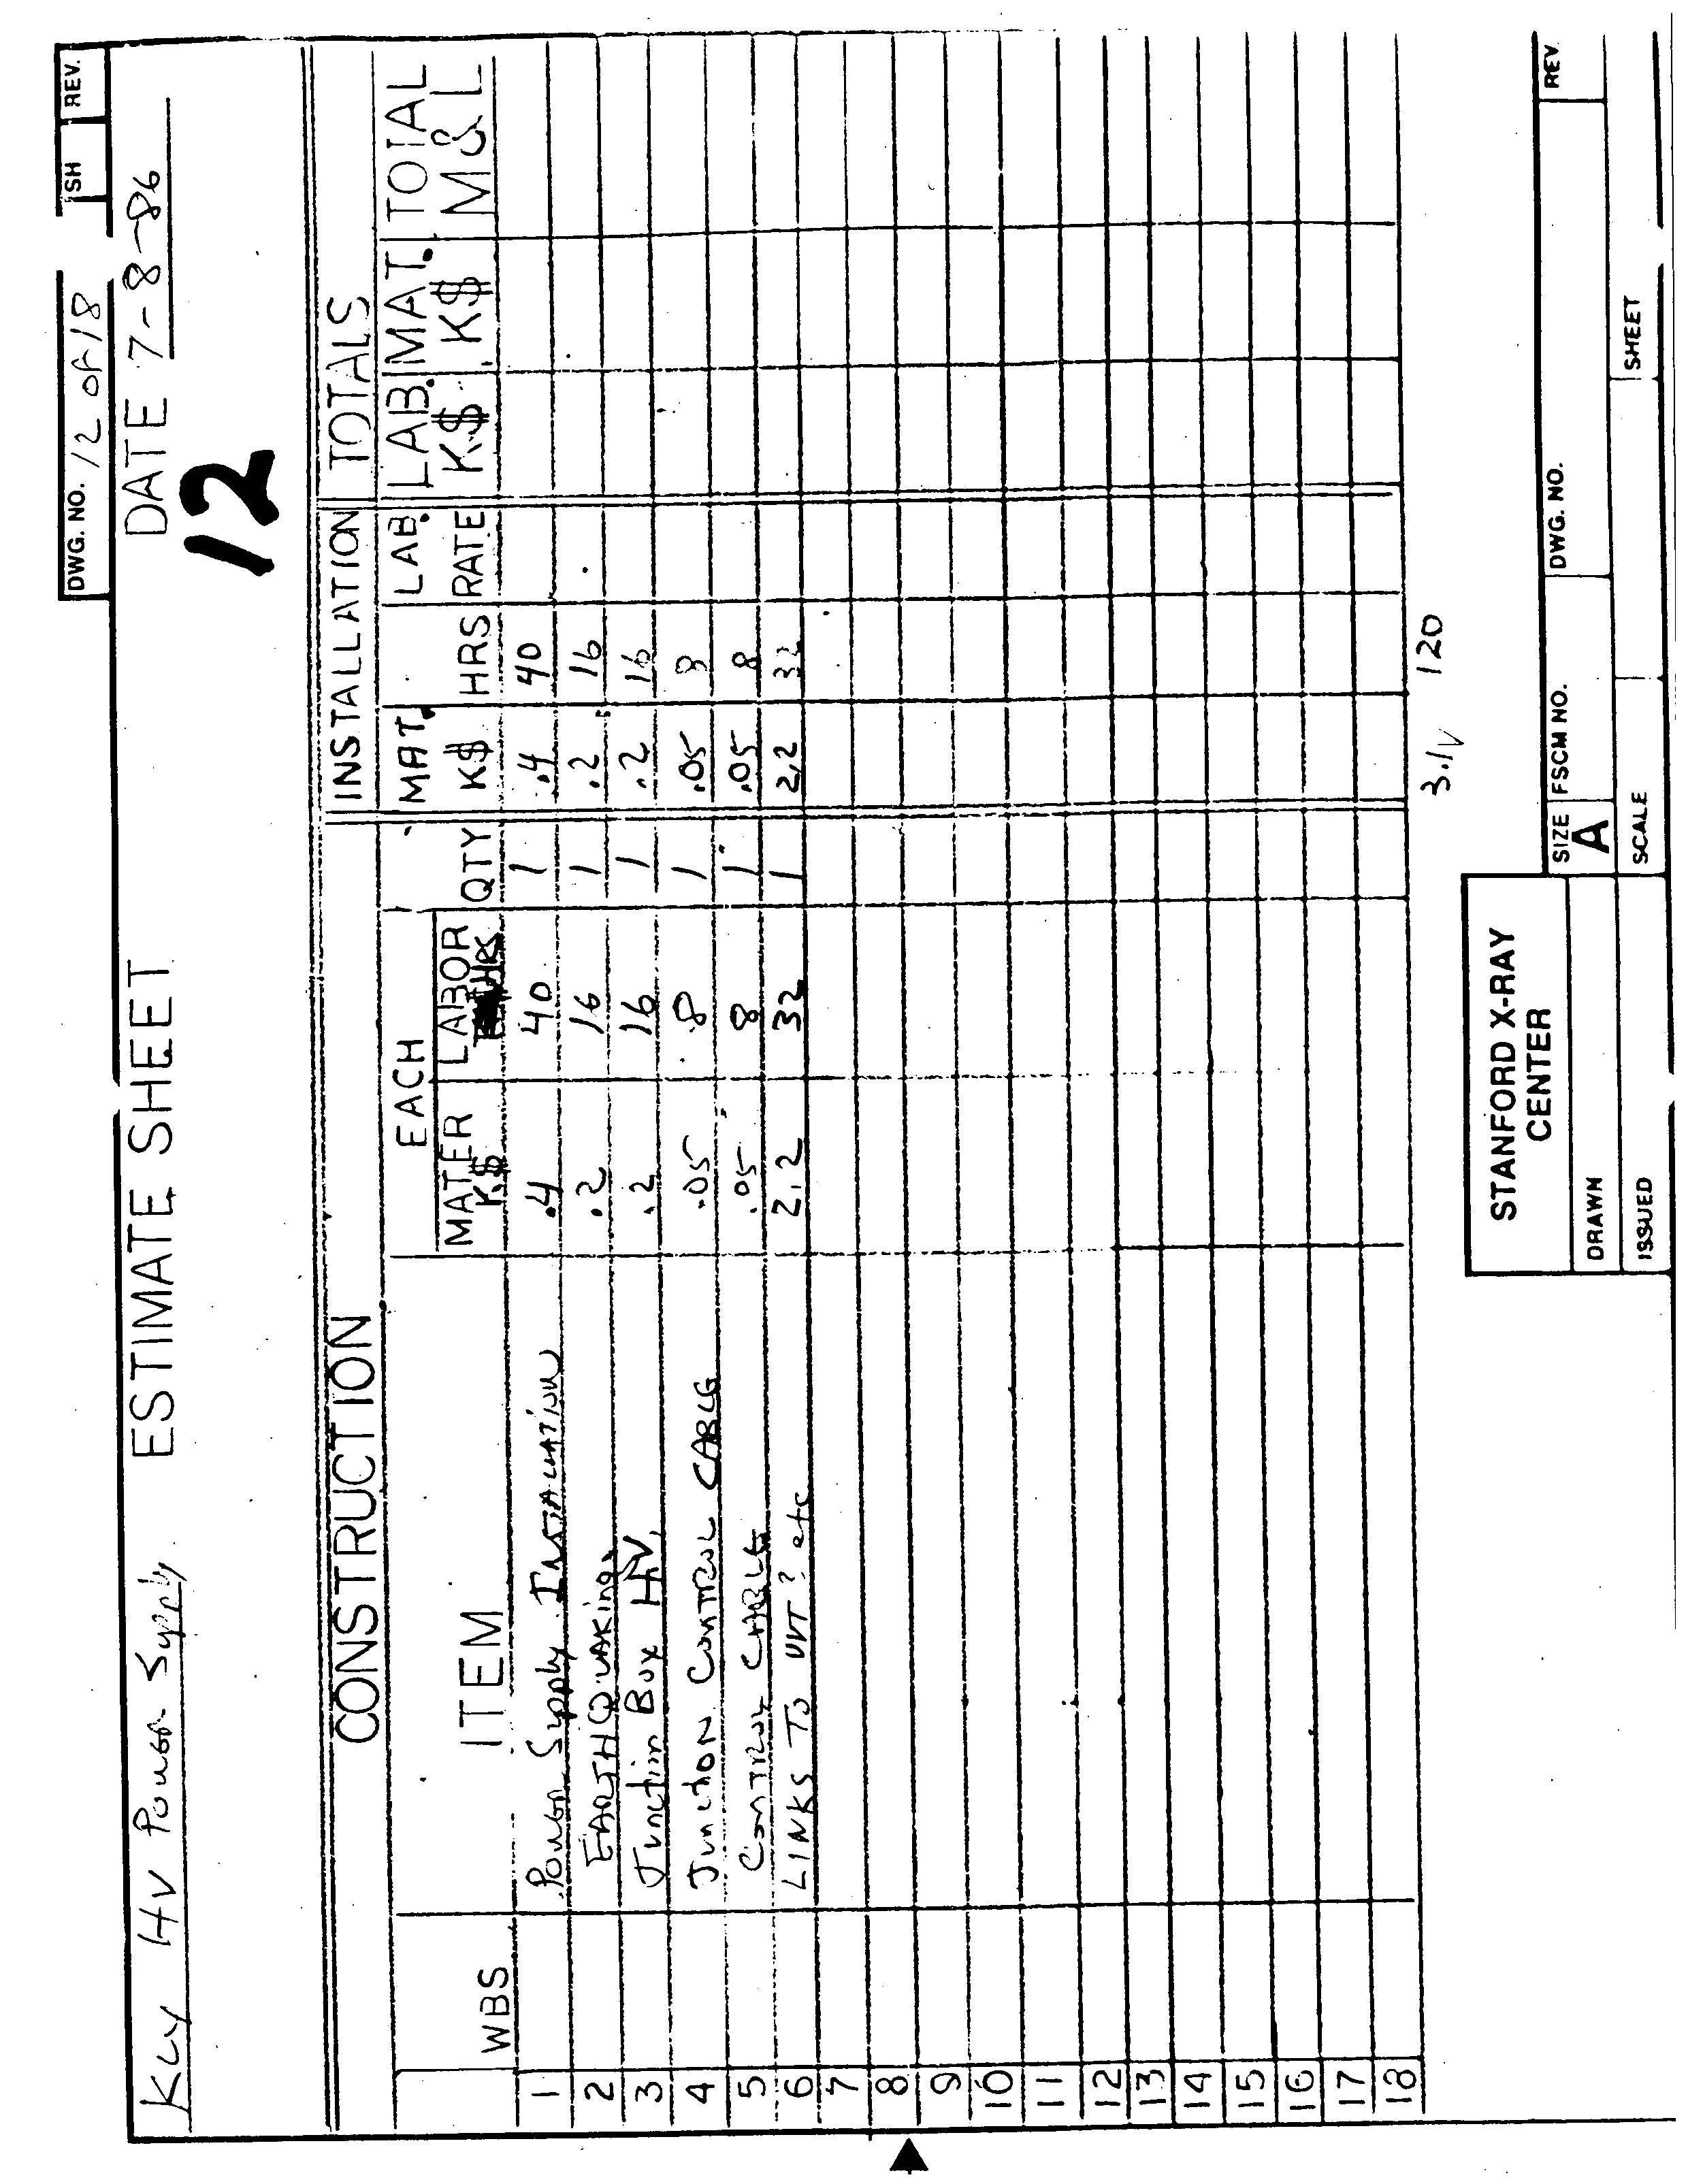 DWG. NO. 12 of 18 SH REV.
Kly HV Power Supply ESTIMATE SHEET DATE 7-8-86
12
CONSTRUCTION INSTALLATION TOTALS
EACH MAT. LAB. LAB. MAT. TOTAL
WBS ITEM MATER K$ LABOR HRS QTY K$ HRS RATE K$ K$ M&L
1 Power Supply Installation .4 40 1 .4 40
2 EARTHQUAKing .2 16 1 .2 16
3 Junction Box HV. .2 16 1 .2 16
4 Junction Control CABLE .05 8 1 .05 8
5 Control CABLE .05 8 1 .05 8
6 LINKS To UVT? etc 2.2 32 1 2.2 32
7
8
9
10
11
12
13
14
15
16
17
18
3.1 120
STANFORD X-RAY CENTER
SIZE A FSCM NO. DWG. NO. REV
DRAWN
ISSUED SCALE SHEET